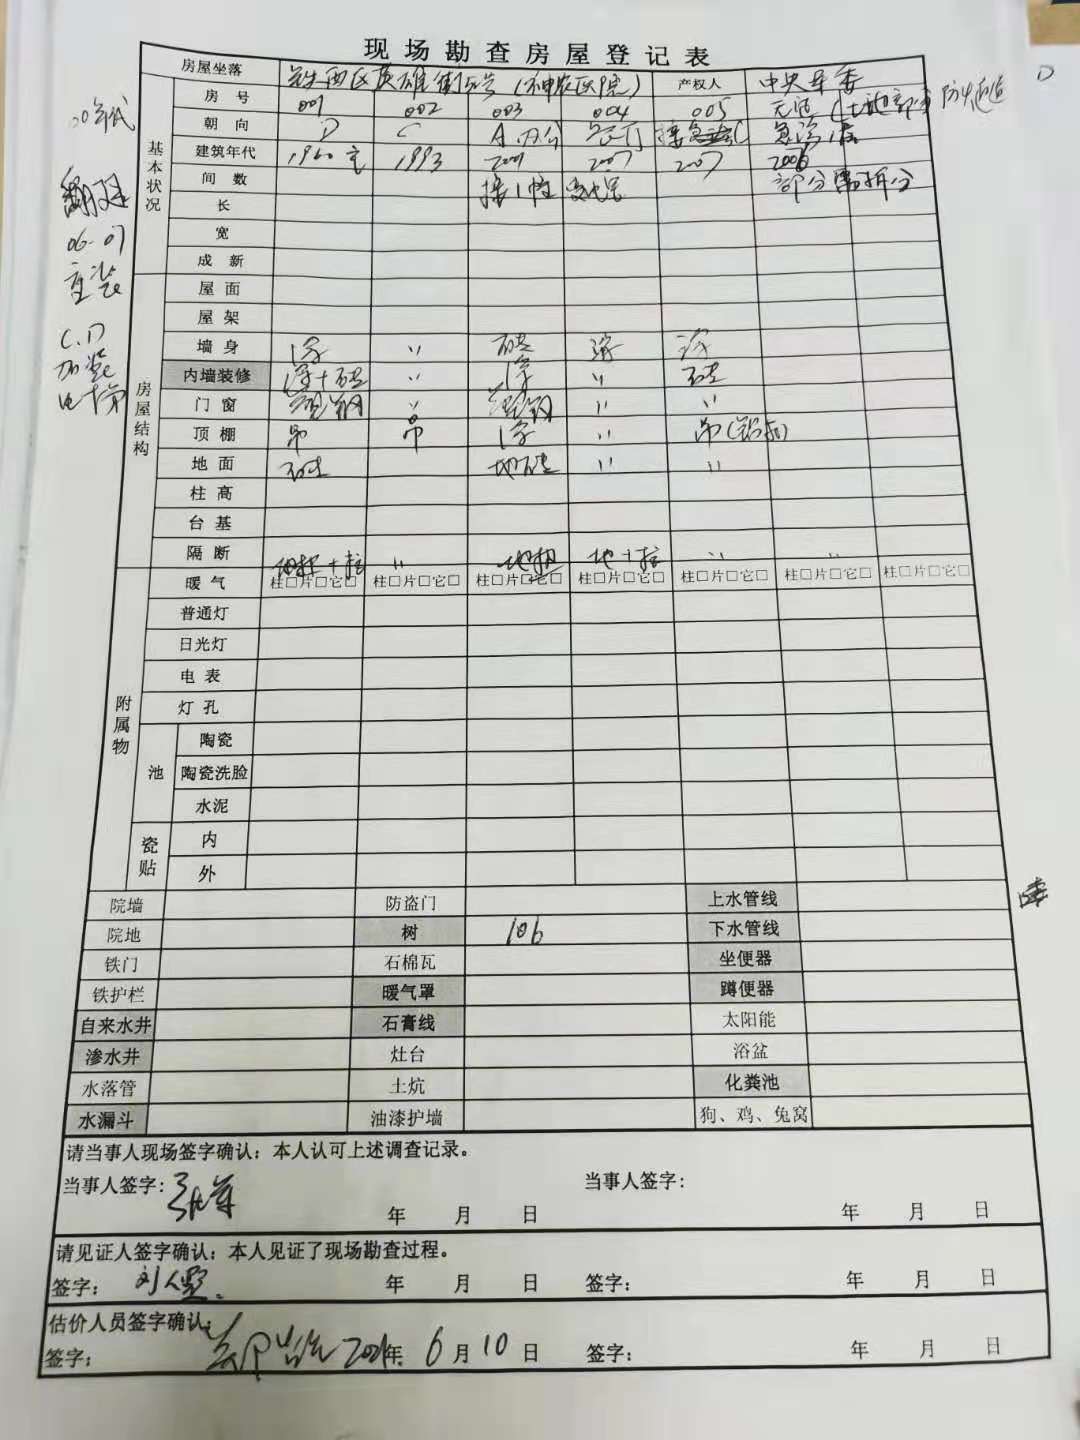 现场勘查房屋登记表
房屋坐落 铁西区英雄街 产权人 中央军委
基本状况
房号 001 002 003 004 005
朝向 D C A
建筑年代 1960 1993 2001 2007 2007 2006
间数 部分
长
宽
成新
房屋结构
屋面
屋架
墙身 涂 〃 砖 涂 涂
内墙装修 涂+砖 〃 涂 〃 砖
门窗 塑钢 〃 塑钢 〃 〃
顶棚 吊 吊 涂 〃 吊
地面 砖 地砖 〃 〃
柱高
台基
隔断
附属物
暖气 柱□片□它□ 柱□片□它□ 柱□片□它□ 柱□片□它□ 柱□片□它□ 柱□片□它□ 柱□片□它□
普通灯
日光灯
电表
灯孔
池 陶瓷
陶瓷洗脸
水泥
瓷贴 内
外
院墙 防盗门 上水管线
院地 树 106 下水管线
铁门 石棉瓦 坐便器
铁护栏 暖气罩 蹲便器
自来水井 石膏线 太阳能
渗水井 灶台 浴盆
水落管 土炕 化粪池
水漏斗 油漆护墙 狗、鸡、兔窝
请当事人现场签字确认：本人认可上述调查记录。
当事人签字： 年 月 日 当事人签字： 年 月 日
请见证人签字确认：本人见证了现场勘查过程。
签字： 年 月 日 签字： 年 月 日
估价人员签字确认：
签字： 2021年 6月 10日 签字： 年 月 日
06-07
重装
C.D
加装
电梯
D